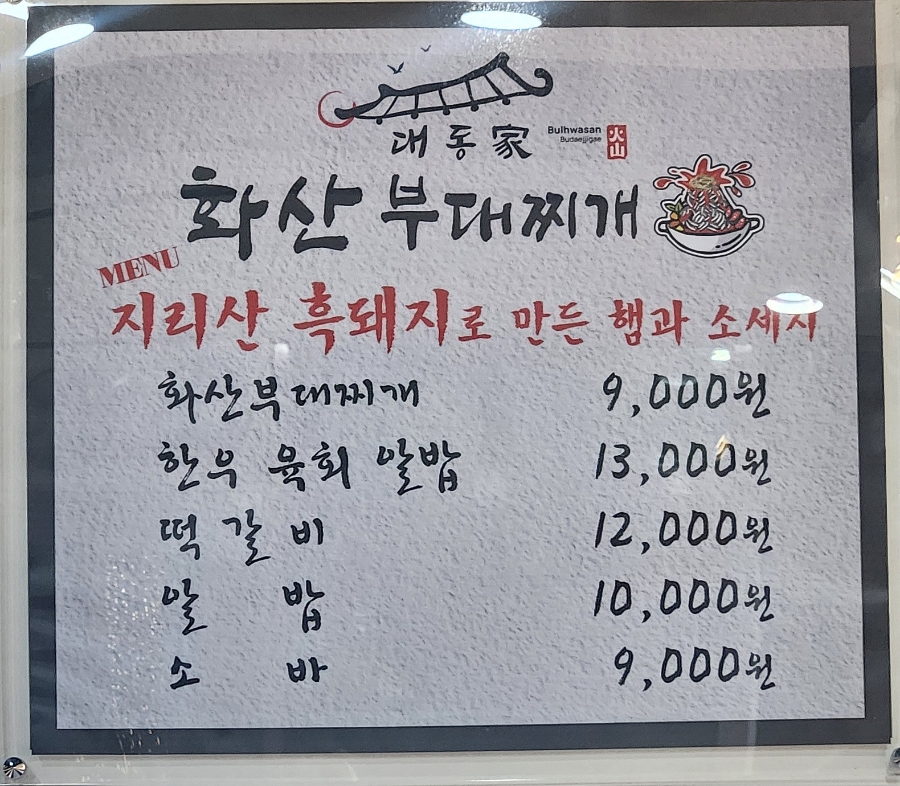 대동家
Bulhwasan
Budaejjigae
火山
화산 부대찌개
MENU
지리산 흑돼지로 만든 햄과 소세지
화산부대찌개 9,000원
한우 육회 알밥 13,000원
떡갈비 12,000원
알 밥 10,000원
소 바 9,000원